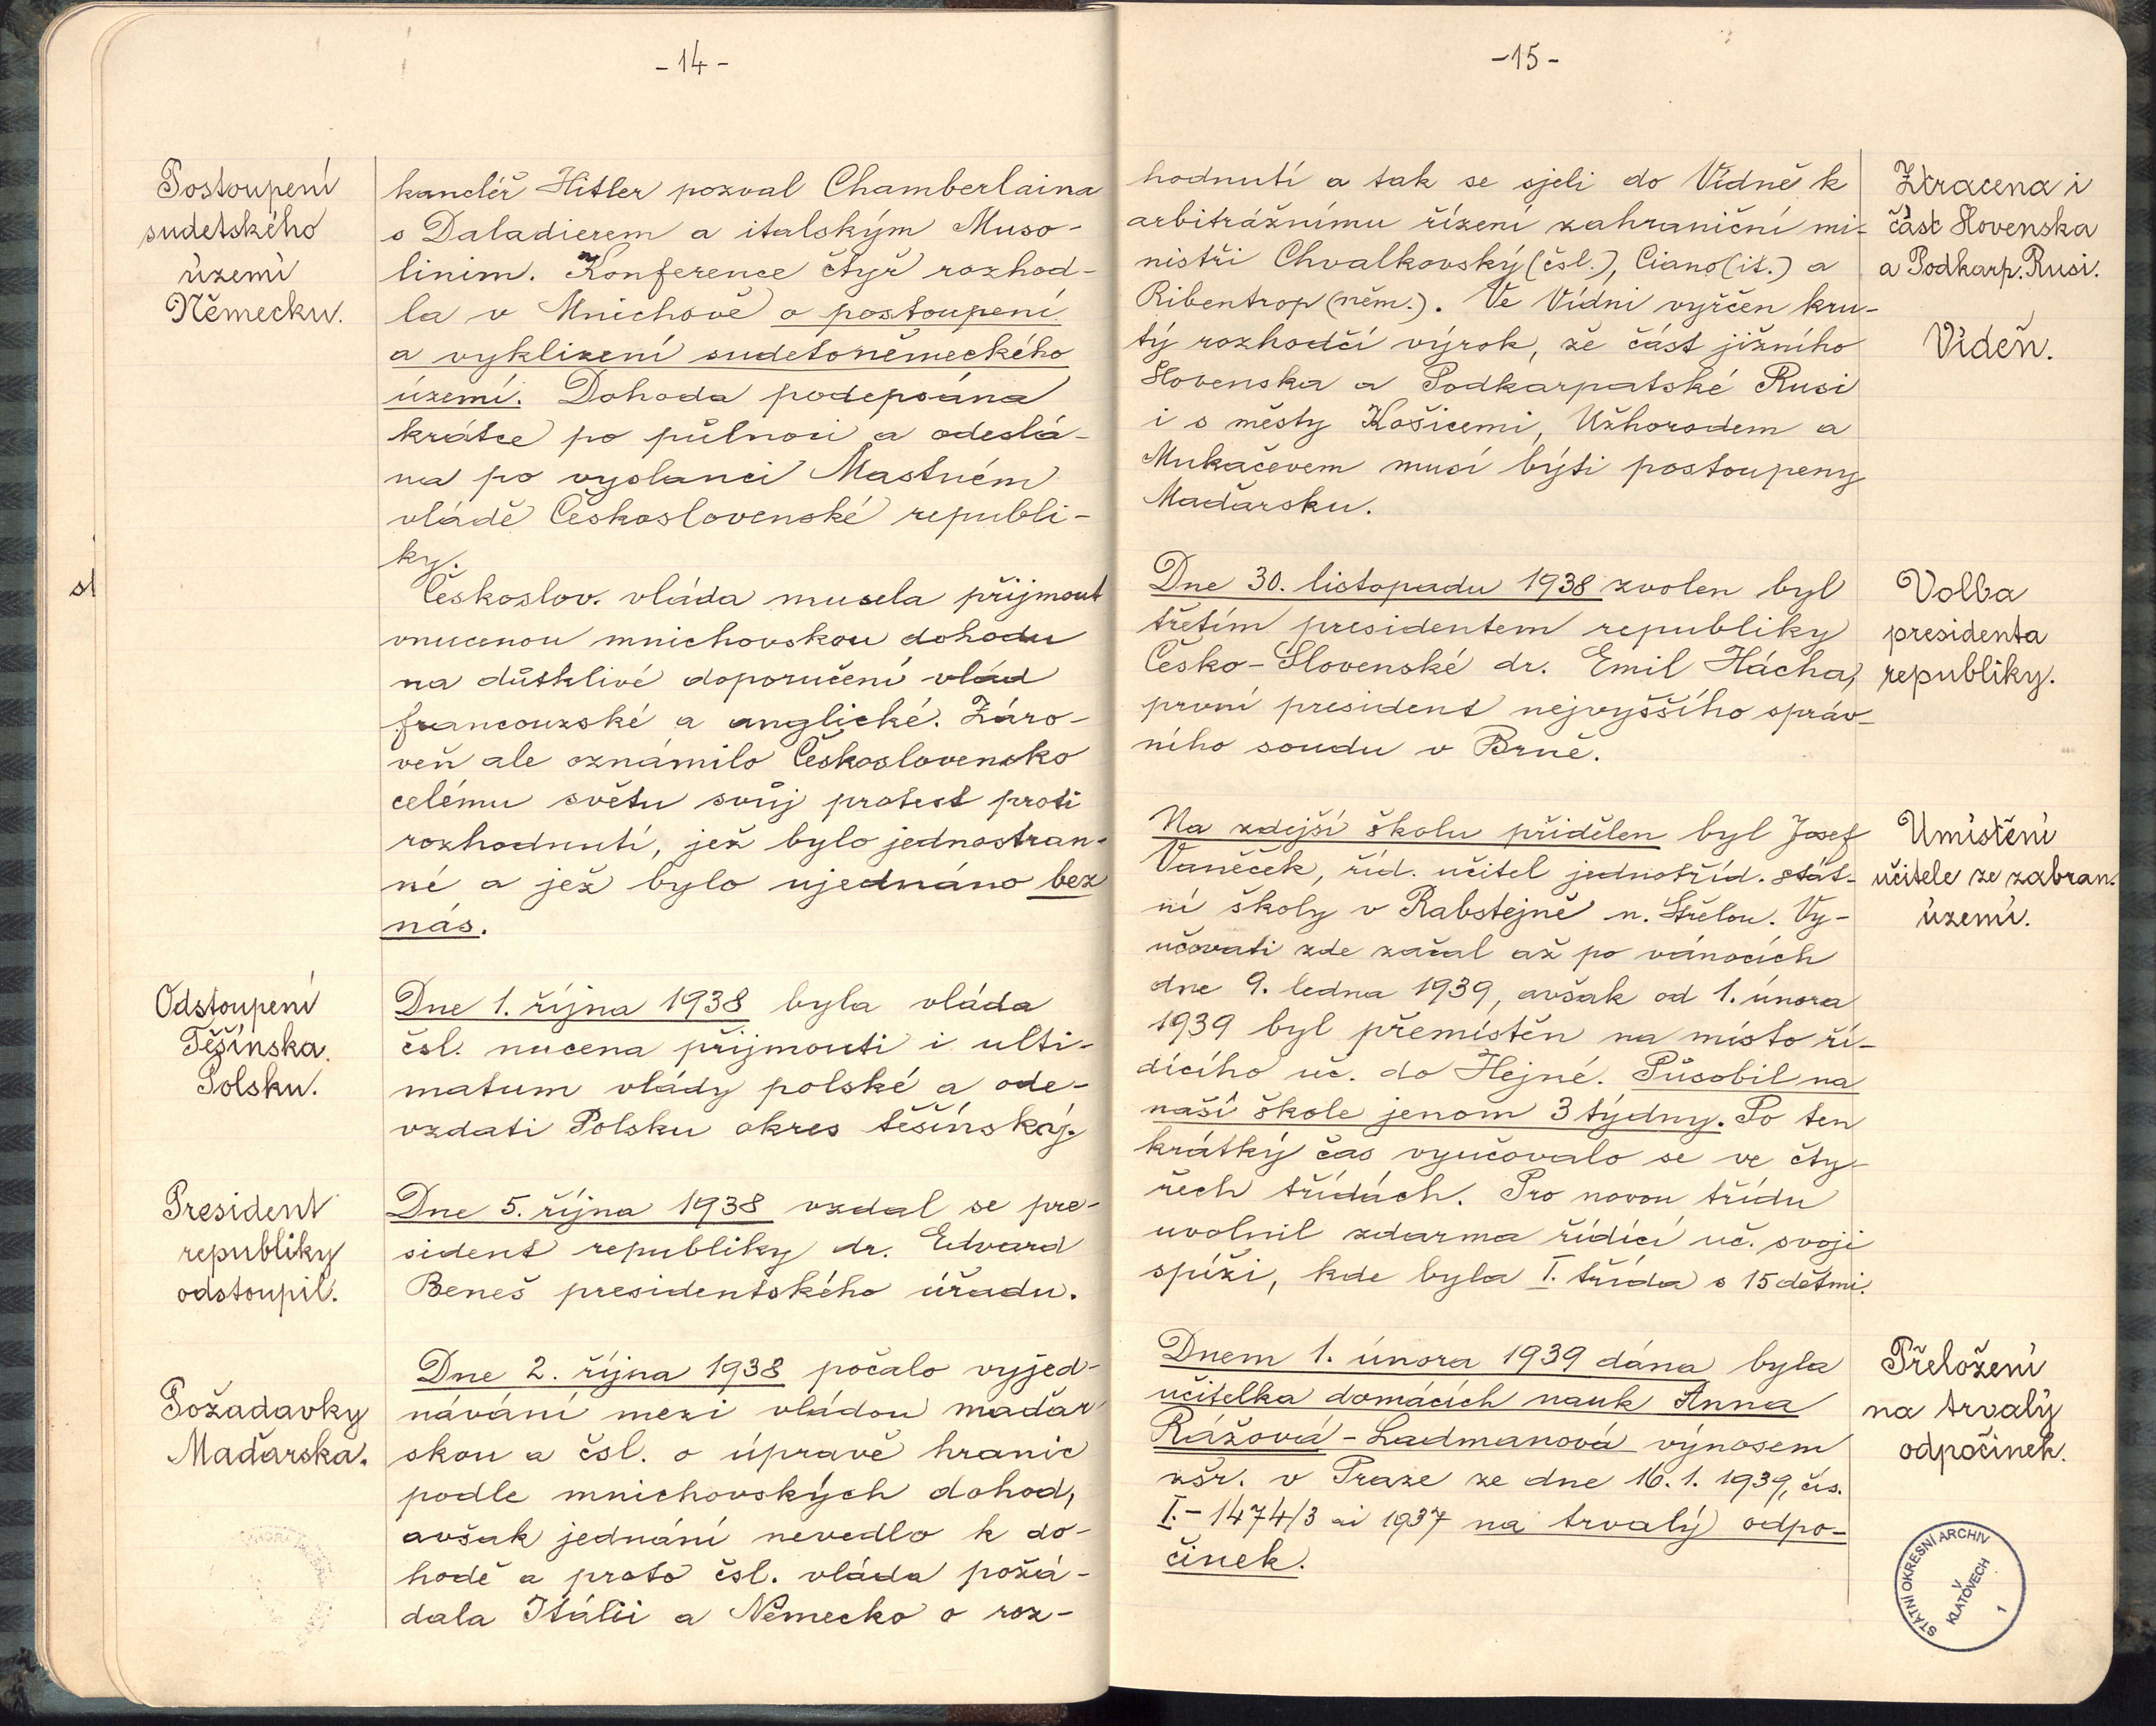 - 14 -
Postoupení
sudetského
území
Německu.
kancléř Hitler pozval Chamberlaina
s Daladierem a italským Muso-
linim. Konference čtyř rozhod-
la v Mnichově o postoupení
a vyklizení sudetoněmeckého
území. Dohoda podepsána
krátce po půlnoci a odeslá-
na po vyslanci Mastném
vládě Československé republi-
ky.
Českoslov. vláda musela přijmout
vnucenou mnichovskou dohodu
na důtklivé doporučení vlád
francouzské a anglické. Záro-
veň ale oznámilo Československo
celému světu svůj protest proti
rozhodnutí, jež bylo jednostran-
né a jež bylo ujednáno bez
nás.
Odstoupení
Těšínska
Polsku.
Dne 1. října 1938 byla vláda
čsl. nucena přijmouti i ulti-
matum vlády polské a ode-
vzdati Polsku okres těšínský.
President
republiky
odstoupil.
Dne 5. října 1938 vzdal se pre-
sident republiky dr. Edvard
Beneš presidentského úřadu.
Požadavky
Maďarska.
Dne 2. října 1938 počalo vyjed-
návání mezi vládou maďar-
skou a čsl. o úpravě hranic
podle mnichovských dohod,
avšak jednání nevedlo k do-
hodě a proto čsl. vláda požá-
dala Itálii a Německo o roz-
sl
-15-
hodnutí a tak se sjeli do Vídně k
arbitrážnímu řízení zahraniční mi-
nistři Chvalkovský (čsl.), Ciano (it.) a
Ribentrop (něm.). Ve Vídni vyřčen kru-
tý rozhodčí výrok, že část jižního
Slovenska a Podkarpatské Rusi
i s městy Košicemi, Užhorodem a
Mukačevem musí býti postoupeny
Maďarsku.
Ztracena i
část Slovenska
a Podkarp. Rusi.
Vídeň.
Dne 30. listopadu 1938 zvolen byl
třetím presidentem republiky
Česko-Slovenské dr. Emil Hácha,
první president nejvyššího správ-
ního soudu v Brně.
Volba
presidenta
republiky.
Na zdejší školu přidělen byl Josef
Vaněček, říd. učitel jednotříd. stát-
ní školy v Rabštejně n. Střelou. Vy-
učovati zde začal až po vánocích
dne 9. ledna 1939, avšak od 1. února
1939 byl přemístěn na místo ří-
dícího uč. do Hejné. Působil na
naší škole jenom 3 týdny. Po ten
krátký čas vyučovalo se ve čty-
řech třídách. Pro novou třídu
uvolnil zdarma řídící uč. svoji
spíži, kde byla I. třída s 15 dětmi.
Umístění
učitele ze zabran.
území.
Dnem 1. února 1939 dána byla
učitelka domácích nauk Anna
Rážová-Ladmanová výnosem
zšr. v Praze ze dne 16. 1. 1939, čís.
I.-1474/3 ai 1937 na trvalý odpo-
činek.
Přeložení
na trvalý
odpočinek.
STÁTNÍ OKRESNÍ ARCHIV
V
KLATOVECH
1